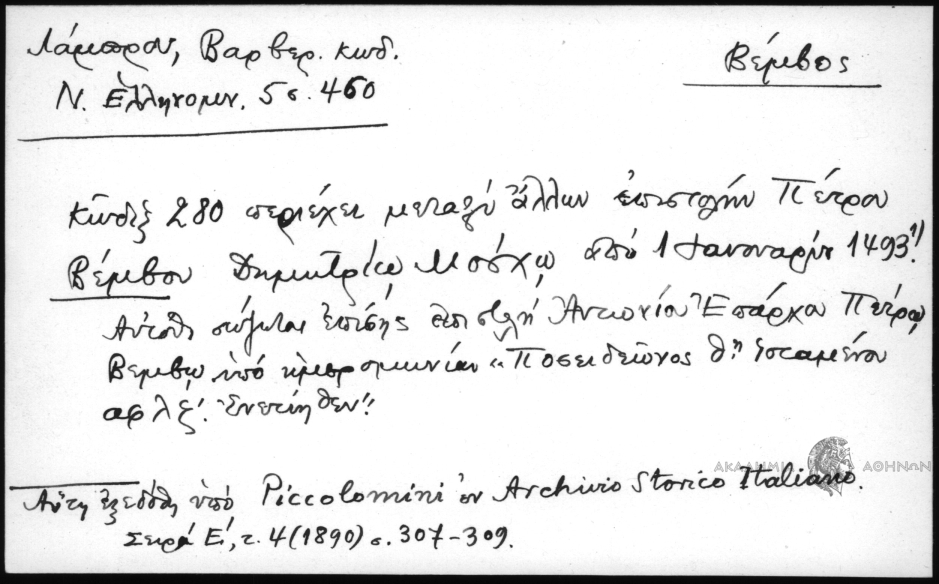 Λάμπρου, Βαρβερ. κωδ.
Ν. Ἑλληνομν. 5 σ. 460
Βέμβος
Κῶδιξ 280 περιέχει μεταξὺ ἄλλων ἐπιστολὴν Πέτρου
Βέμβου Δημητρίῳ Μόσχῳ ἀπὸ 1 Ἰανουαρίου 1493.¹⁾
Αὐτόθι σῴζεται ἐπίσης ἐπιστολὴ Ἀντωνίου Ἐπάρχου Πέτρῳ
Βέμβῳ ὑπὸ ἡμερομηνίαν "Ποσειδεῶνος θῃ ἱσταμένου
αφλξ΄. Ἐνετίηθεν".
ΑΚΑΔΗΜΙΑ ΑΘΗΝΩΝ
Αὕτη ἐξεδόθη ὑπὸ Piccolomini ἐν Archivio Storico Italiano.
Σειρά Ε΄, τ. 4 (1890) σ. 307-309.